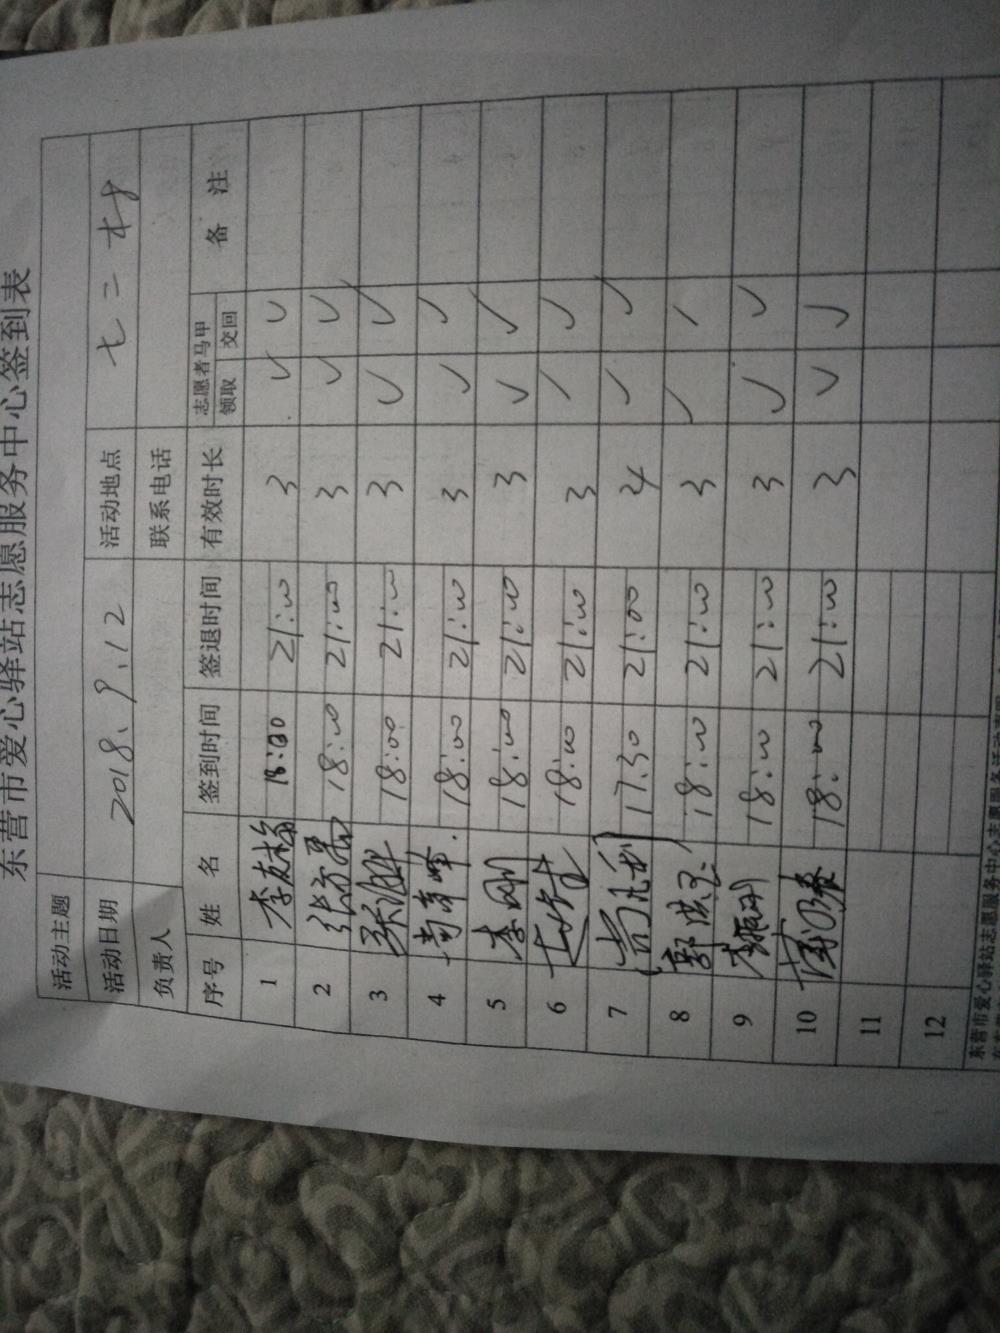 东营市爱心驿站志愿服务中心签到表
活动主题
活动日期 2018.9.12 活动地点 七二村
负责人 联系电话
序号 姓名 签到时间 签退时间 有效时长 志愿者马甲 领取 交回 备注
1 18:00 21:00 3 ✓ ✓
2 18:00 21:00 3 ✓ ✓
3 18:00 21:00 3 ✓ ✓
4 18:00 21:00 3 ✓ ✓
5 李刚 18:00 21:00 3 ✓ ✓
6 18:00 21:00 3 ✓ ✓
7 17:30 21:00 4 ✓ ✓
8 18:00 21:00 3 ✓ ✓
9 18:00 21:00 3 ✓ ✓
10 18:00 21:00 3 ✓ ✓
11
12
东营市爱心驿站志愿服务中心志愿服务活动